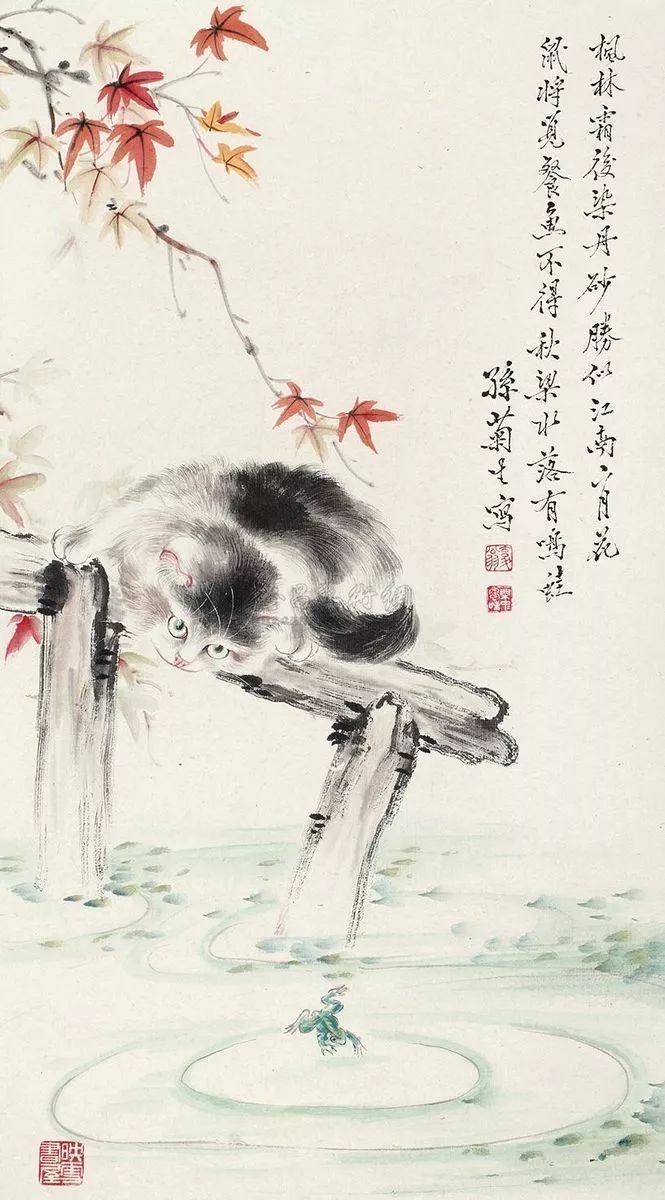 楓林霜後染丹砂勝似江南二月花
鼠將覓餐魚不得秋梁水落有鳴蛙
孫菊生寫
映雪書屋